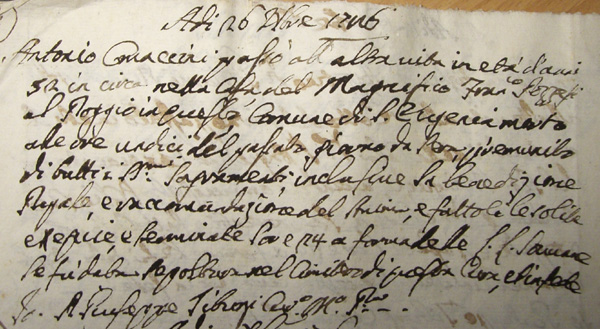 Adi 26 Xbre 1716
Antonio Comaccini passò all altra vita in età d'anni
52 in circa nella Casa del Magnifico Fran.co
al Poggio in questo Comune di S. morto
alle ore undici del passato giorno da sera, premunito
di tutti i SS.mi Sagramenti inclusive la benedizione
Papale, e racomandazione del anima, e fattoli le solite
esequie, e terminate l'ore 24 a forma delle
se fù data sepoltura nel Cimiterio di questa Cura, et in fede
Io. A Giuseppe Tibroni